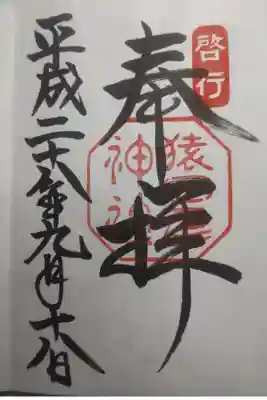 啓行
奉拝
猿
神社
平成二十八年九月十八日